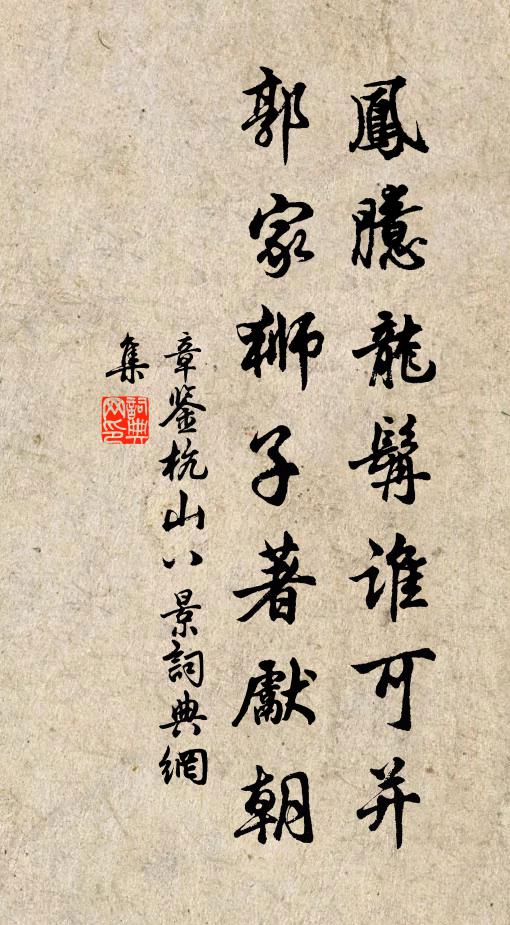 鳳臆龍鬐谁可并
郭家獅子著獻朝
章鉴杭山八景詞典網
集
詞典网印